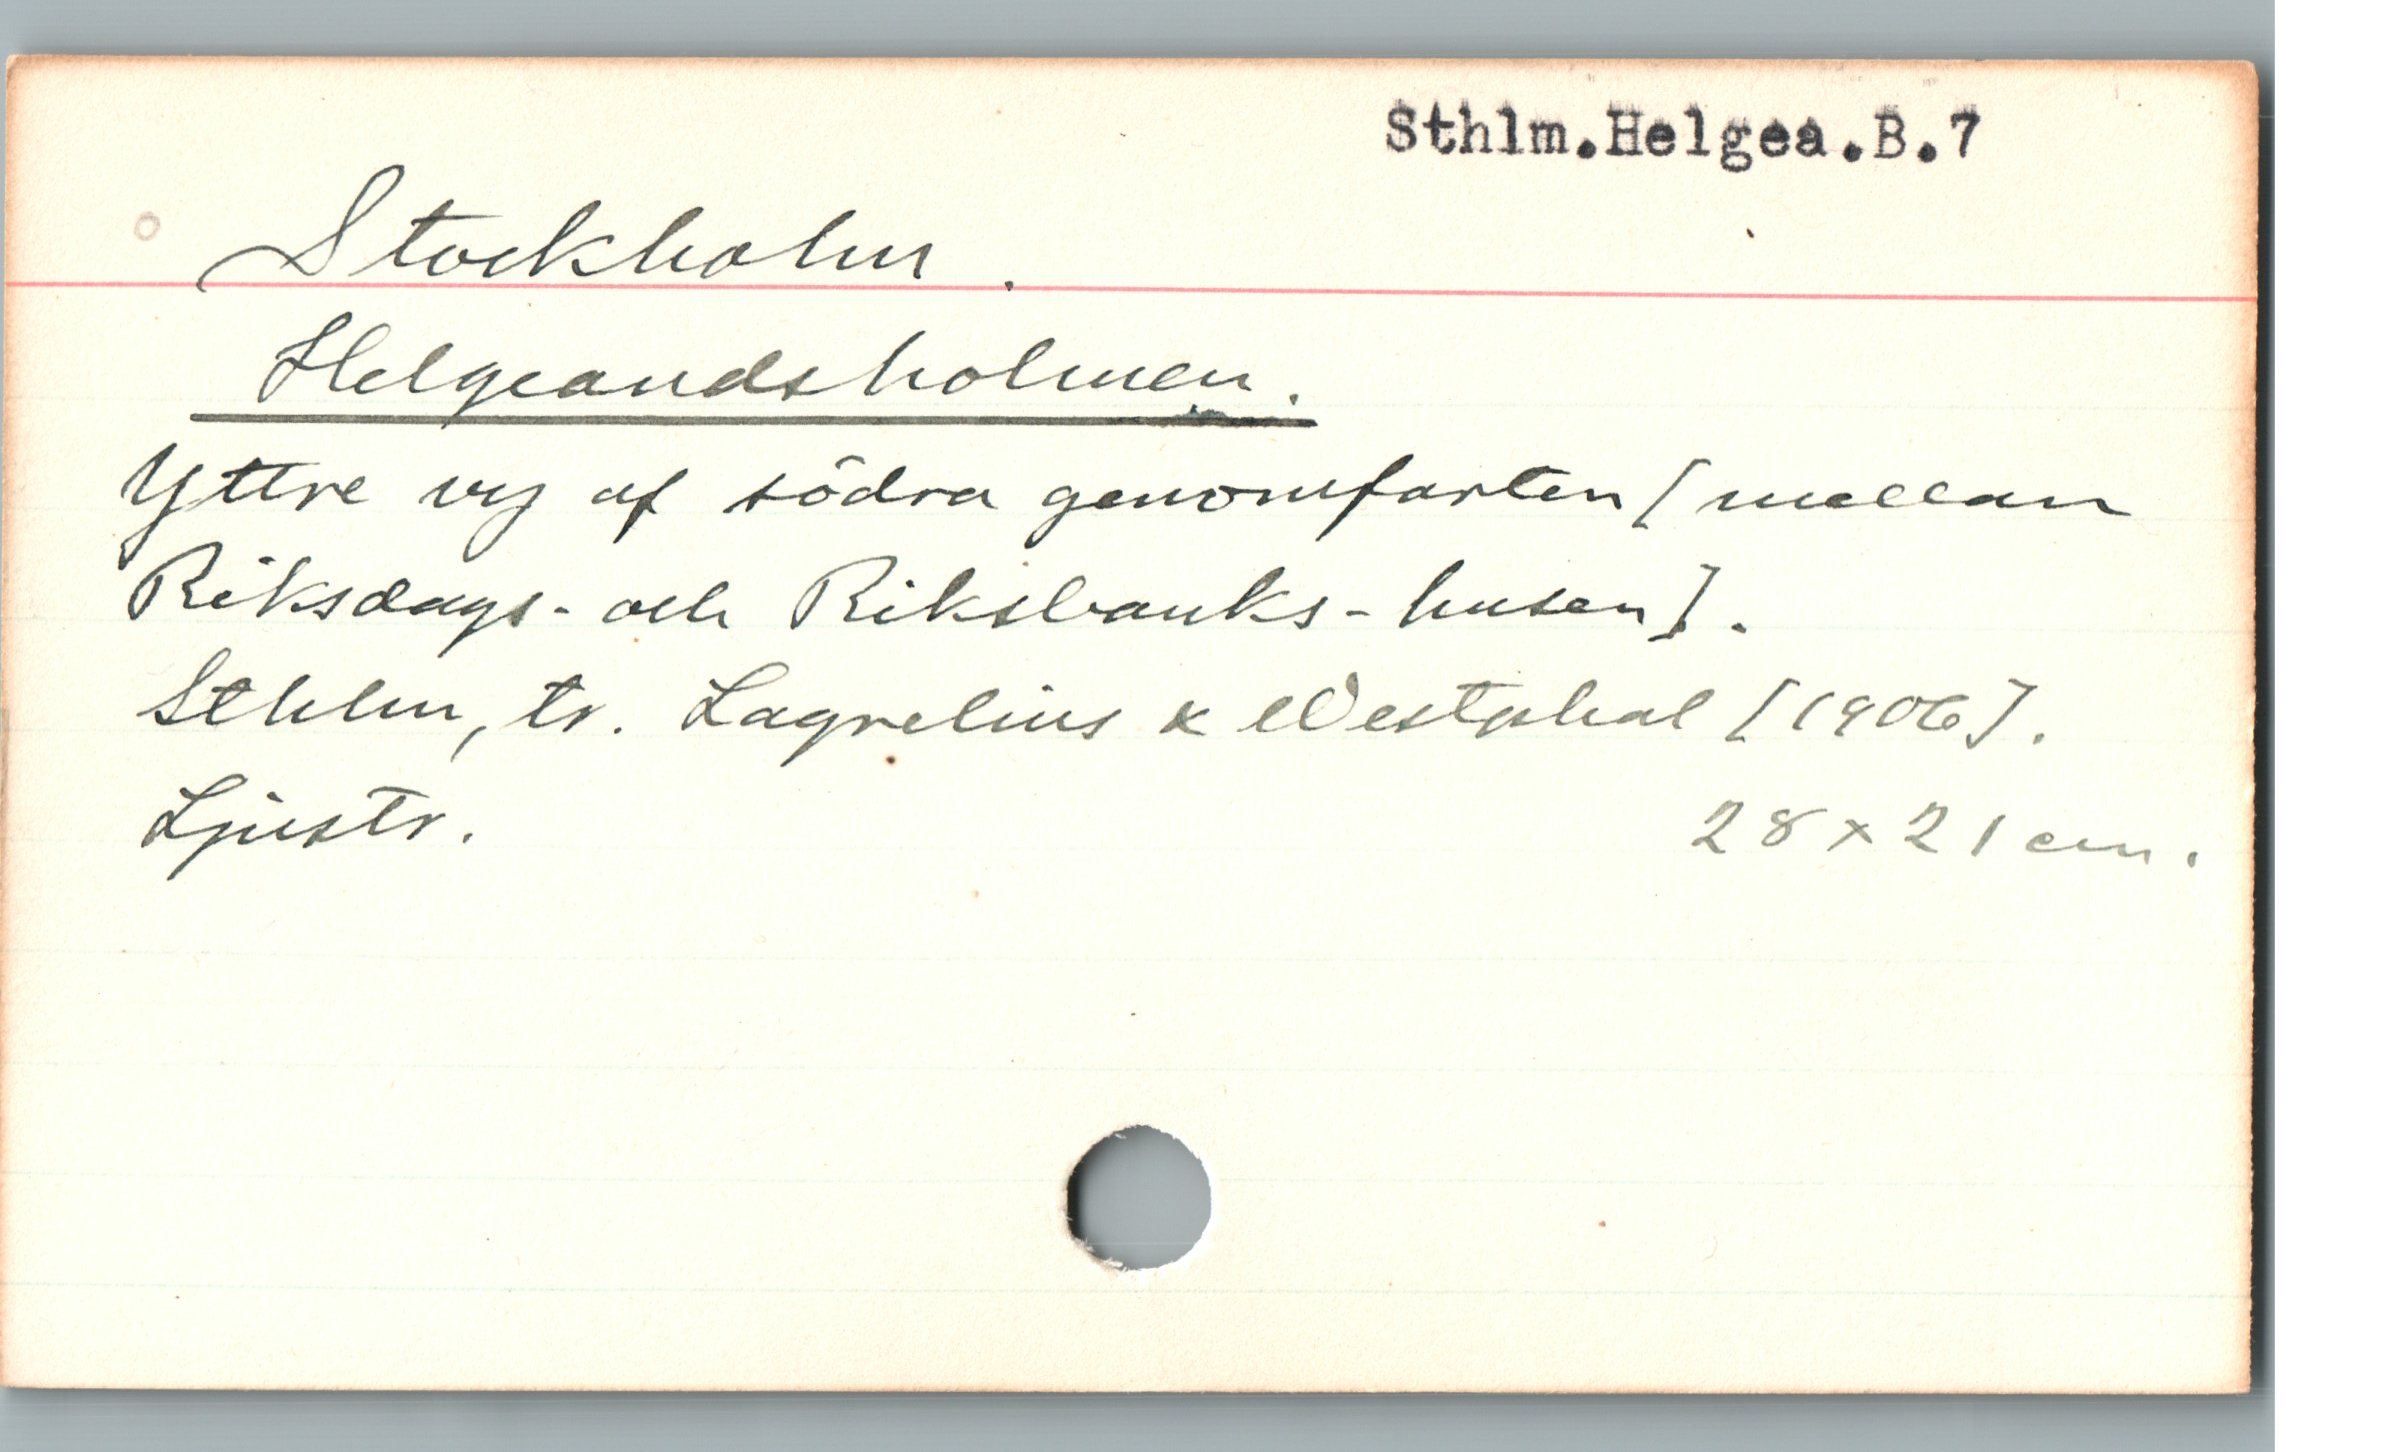 Sthlm.Helgea.B.7
Stockholm.
Helgeandsholmen.
Yttre vy af södra genomfarten [mellan
Riksdags- och Riksbanks-husen].
Sthlm, tr. Lagrelius & Westphal [1906].
Ljustr.
28 x 21 cm.